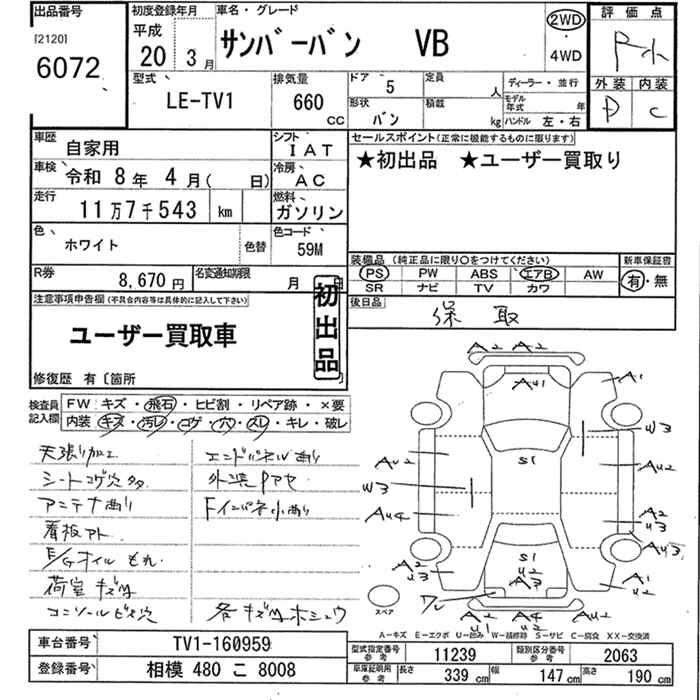 出品番号
[2120]
6072
初度登録年月
平成
20 年 3 月
車名・グレード
サンバーバン VB
2WD
・
4WD
評価点
R小
外装 内装
D C
型式
LE-TV1
排気量
660 CC
ドア 5
形状 バン
定員 人
積載 kg
ディーラー・並行
モデル年式 年
ハンドル 左・右
車歴 自家用
シフト IAT
車検 令和 8年 4月( 日)
冷房 AC
走行 11万7千543 km
燃料 ガソリン
色 ホワイト 色替
色コード 59M
R券 8,670円
名変通知期限 月 日
セールスポイント(正常に機能するものに限ります)
★初出品 ★ユーザー買取り
装備品(純正品に限り○をつけてください) 新車保証書
PS PW ABS エアB AW 有・無
SR ナビ TV カワ
後日品 保 取
注意事項申告欄(不具合内容等は具体的に記入して下さい)
ユーザー買取車
初出品
修復歴 有〔箇所
検査員記入欄
FW:キズ・飛石・ヒビ割・リペア跡・×要
内装:キズ・汚レ・コゲ・穴・スレ・キレ・破レ
天張り加工
シートコゲ穴多
アンテナ曲り
看板アト
E/Gオイルもれ
荷室キズ凹
コンソールビス穴
エンドパネル曲り
外装Pアセ
Fインパネ小曲り
各キズ凹ホシュウ
A2 A2
AU1
A1
W3
S1
AU2
AU2
W3
AU4
A2
U3
AU3
A2
U3
S1
U2
A3
A1
U2
ワレ
A2
U1
A4
U2
AU2
スペア
A-キズ E-エクボ U-凹み W-補修跡 S-サビ C-腐食 XX-交換済
車台番号 TV1-160959
登録番号 相模 480 こ 8008
型式指定番号 参考 11239
類別区分番号 参考 2063
車庫証明用 参考 長さ 339 cm 幅 147 cm 高さ 190 cm